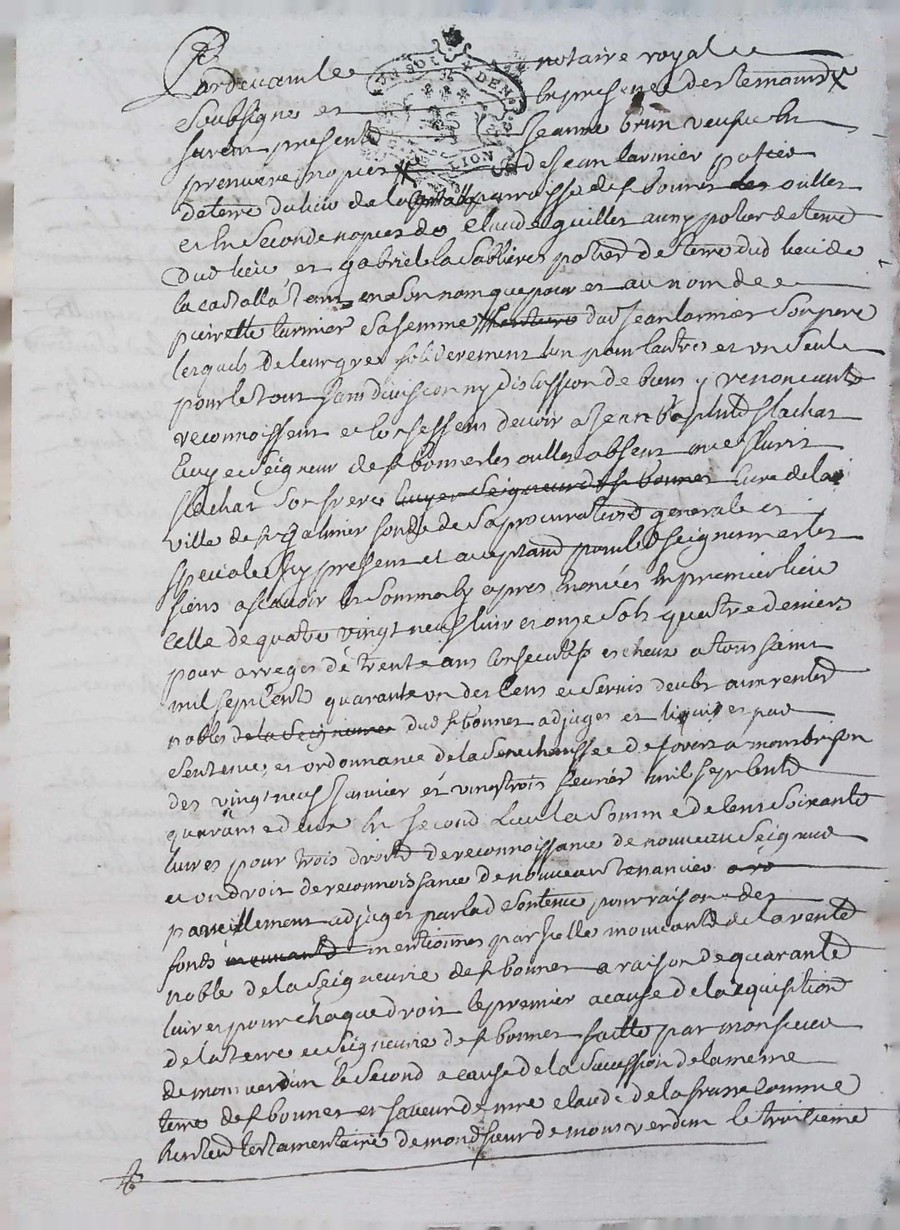 Pardevant le notaire royal
soubsigné et En presence des temoins
furent presents Jeanne brun veufve En
premiere nopces de Jean larmier potier
de terre du lieu de la parroisse de st bonnet les oulles
et En seconde nopces de Claude guillet aussy potier de terre
dud lieu et gabriel la sabliere potier de terre dud lieu de
la castalla tant en son nom que pour et au nom de
pierrette larmier sa femme dud Jean larmier son pere
lesquels de leur gré solidairement lun pour lautre et un seul
pour le tout sans division ny discussion de biens y renoncant
reconnoissent et Confessent devoir a Jean Baptiste flachat
Ecuyer Seigneur de st bonnet les oulles absent
flachat son frere Ecuyer Seigneur de st bonnet Curé de la
ville de st galmier fondé de sa procuration generale et
specialle Icy present et acceptant pour led seigneur et les
siens a scavoir les sommes cy apres Enoncées En premier lieu
celle de quatre vingt neuf livres onze sols quatre deniers
pour arreges de trente ans consecutifs echeus a toussaint
mil sept cent quarante un des Cens et servis deubs aux rentes
nobles de la Seigneurie dud st bonnet adjugés et liquides par
sentence et ordonnance de la Senechaussée de forest a montbrison
des vingt neuf Janvier et vingt trois fevrier mil sept cent
quarante deux En second lieu la somme de cent soixante
livres pour trois droits de reconnoissance de nouveau Seigneur
et un droit de reconnoissance de nouveau tenancier
pareillement adjugés par lad sentence pour raison des
fonds mouvants mentionnés par Icelle mouvants de la rente
noble de la Seigneurie de st bonnet a raison de quarante
livres pour chaque droit le premier a cause de lacquisition
de la terre et Seigneurie de st bonnet faitte par monsieur
de mont verdun le second a cause de la succession de la meme
terre de st bonnet en faveur de mre claude de la frasse comme
heritier testamentaire de mond sieur de mont verdun le troisieme